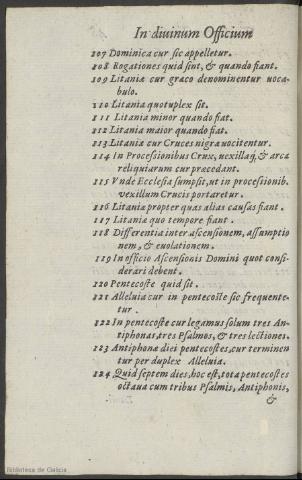 In diuinum Officium
107 Dominica cur sic appelletur.
108 Rogationes quid sint, & quando fiant.
109 Litaniæ cur græco denominentur uoca-
bulo.
110 Litania quotuplex sit.
111 Litania minor quando fiat.
112 Litania maior quando fiat.
113 Litania cur Cruces nigra uocitentur.
114 In Processionibus Crux, uexillaq́, & arca
reliquiarum cur præcedant.
115 Vnde Ecclesia sumpsit, ut in processionib.
vexillum Crucis portaretur.
116 Litaniæ propter quas alias causas fiant.
117 Litaniæ quo tempore fiant.
118 Differentia inter ascensionem, assumptio
nem, & euolationem.
119 In officio Ascensionis Domini quot consi-
derari debent.
120 Pentecoste quid sit.
121 Alleluia cur in pentecoste sic frequente-
tur.
122 In pentecoste cur legamus solum tres An-
tiphonas, tres Psalmos, & tres lectiones.
123 Antiphonæ diei pentecostes, cur terminen
tur per duplex Alleluia.
124 Quid septem dies, hoc est, tota pentecostes
octaua cum tribus Psalmis, Antiphonis,
&
Biblioteca de Galicia